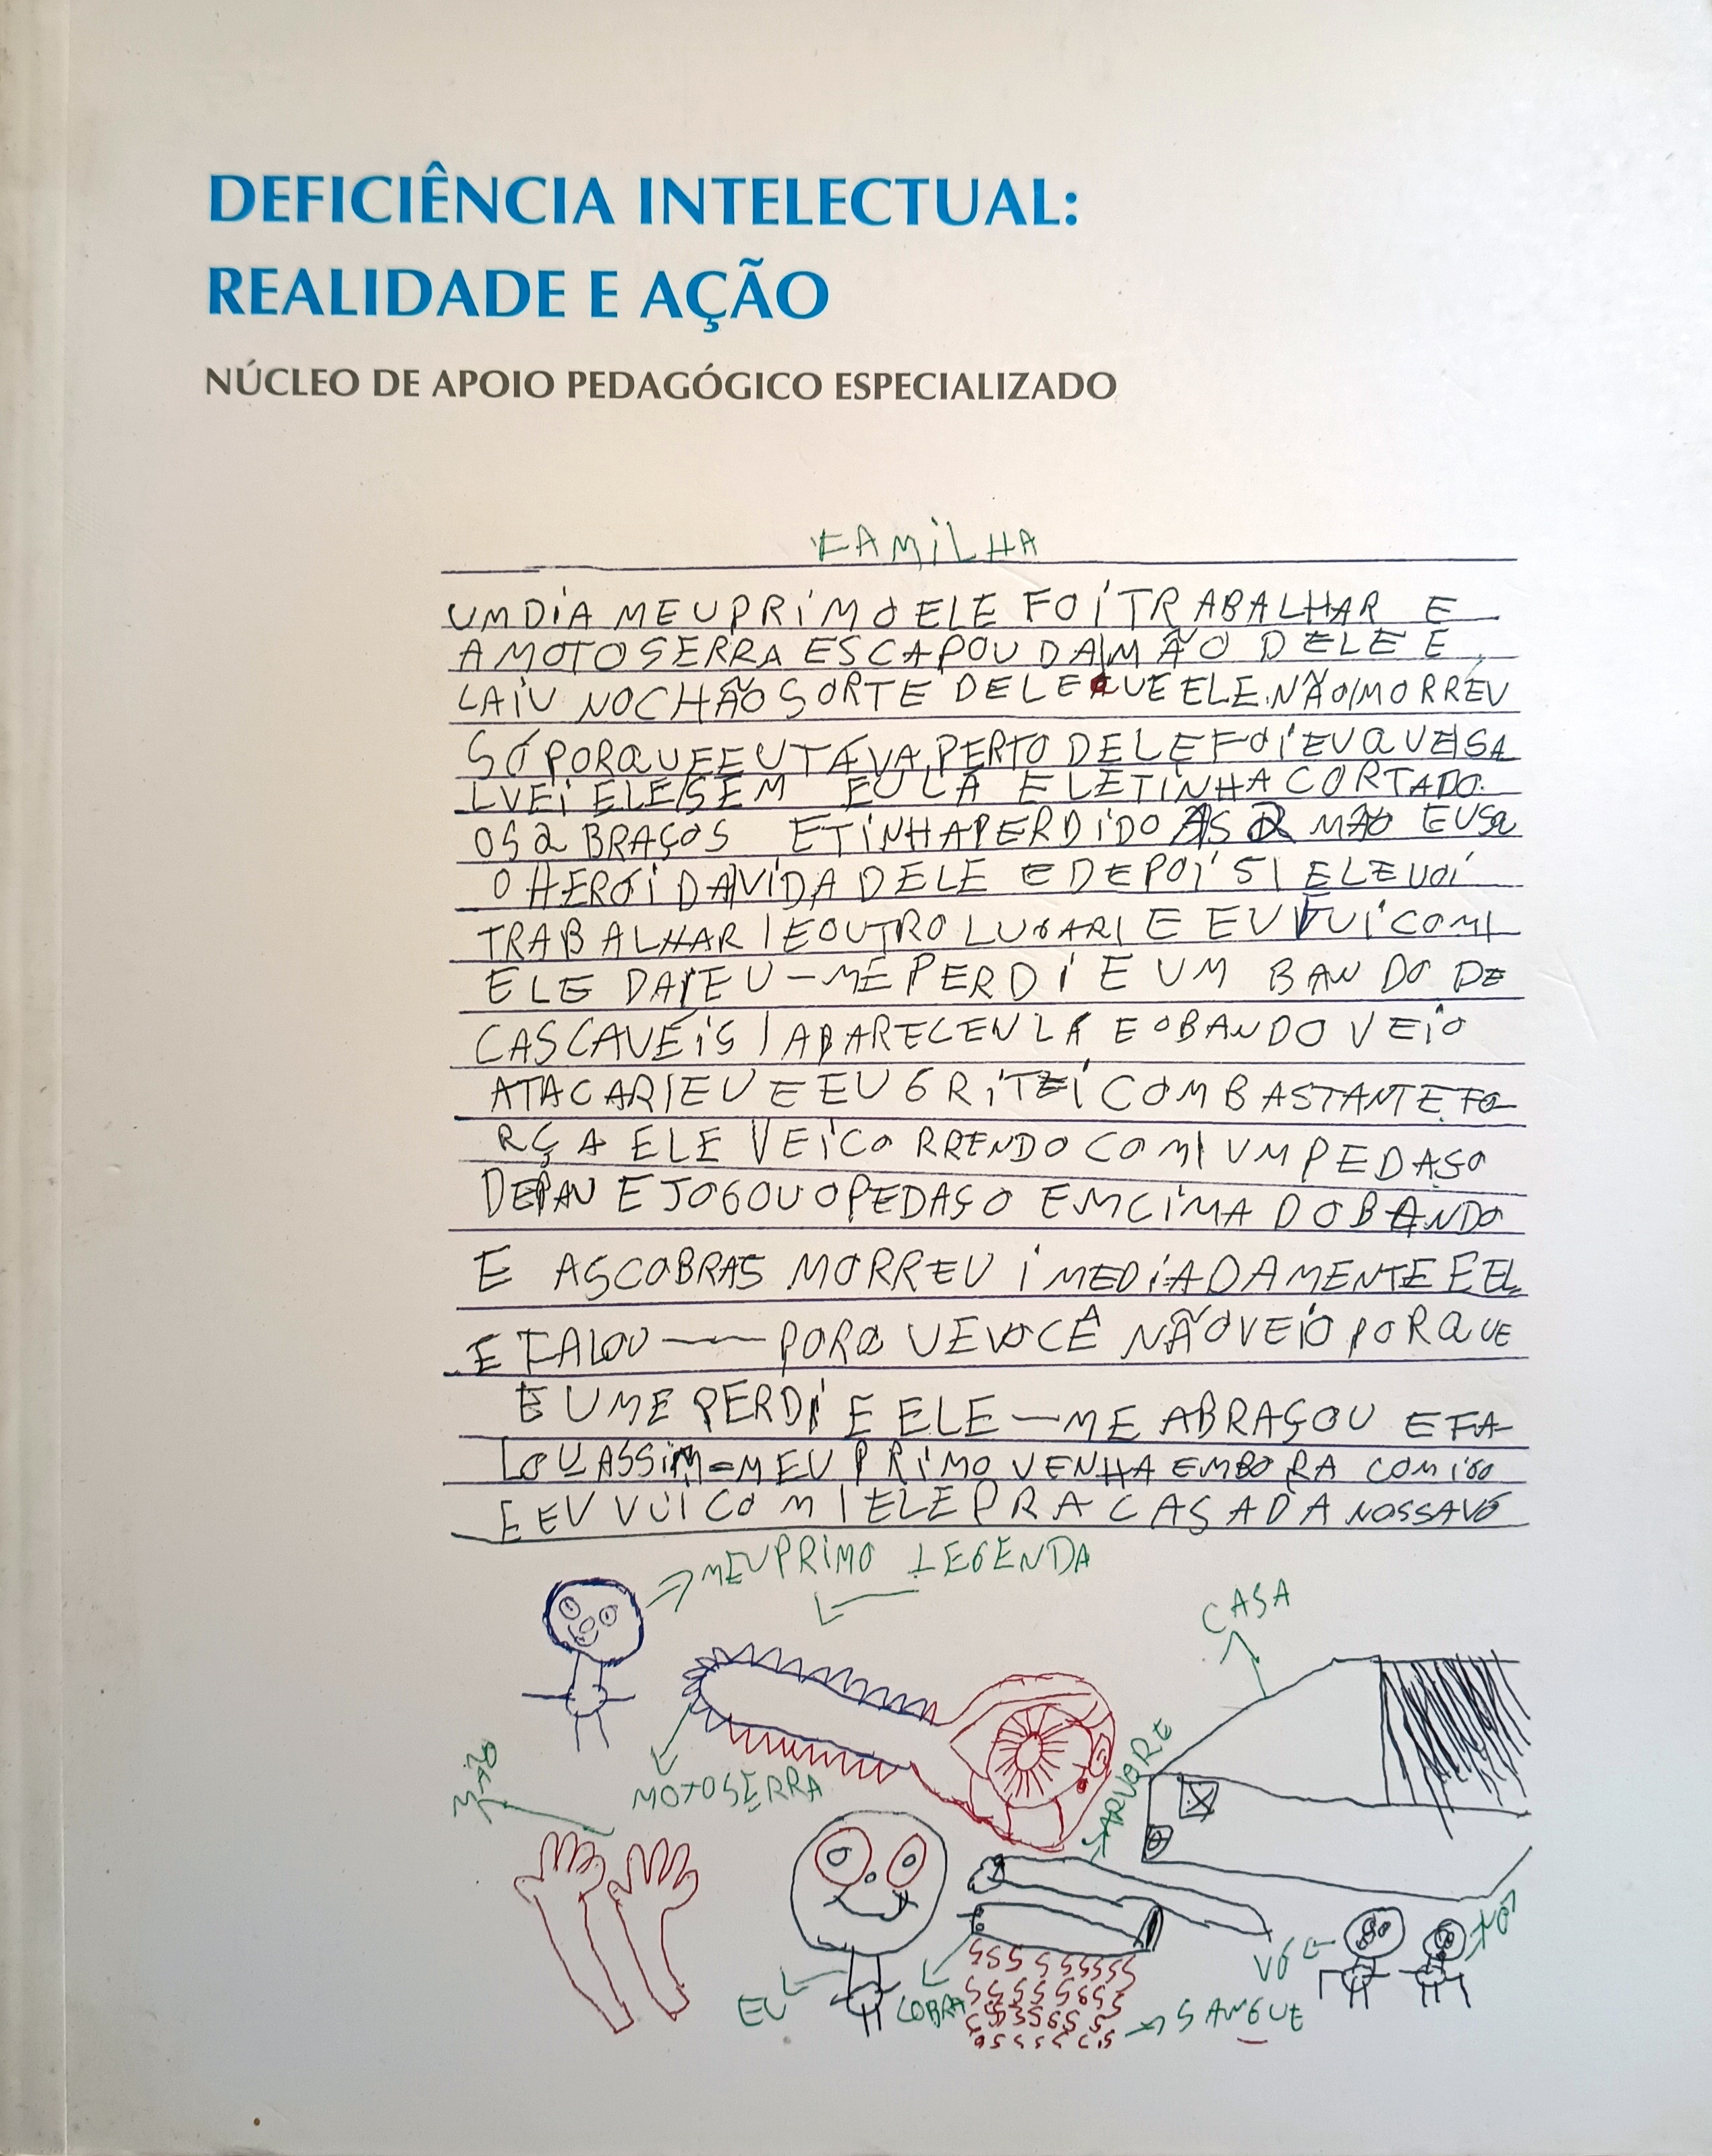 DEFICIÊNCIA INTELECTUAL:
REALIDADE E AÇÃO
NÚCLEO DE APOIO PEDAGÓGICO ESPECIALIZADO
FAMiLHA
UM DiA MEU PRiMO ELE FOi TRABALHAR E
A MOTOSERRA ESCAPOU DA MÃO DELE E
CAiU NO CHÃO SORTE DELE QUE ELE NÃO MORREU
SÓ PORQUE EU TÁVA PERTO DELE FOi EU QUE SA
LVEi ELE SEM EU LÁ ELE TiNHA CORTADO
OS 2 BRAÇOS E TiNHA PERDiDO AS 2 MÃO EU SO
O HEROi DA ViDA DELE E DEPOiS ELE VOi
TRABALHAR E OUTRO LUGAR E EU VUi COM
ELE DAi EU - ME PERDi E UM BANDO DE
CASCAVÉiS APARECEU LÁ E O BANDO VEiO
ATACAR EU E EU GRiTEi COM BASTANTE FO
RÇA ELE VEiCORRENDO COM UM PEDASO
DEPAU E JOGOU O PEDASO EM CiMA DO BANDO
E AS COBRAS MORREU iMEDiADAMENTE E EL
E FALOU — PORQUE VOCÊ NÃO VEiO PORQUE
EU ME PERDi E ELE — ME ABRAÇOU E FA
LOU ASSiM = MEU PRiMO VENHA EMBORA COMiGO
E EU VUi COM ELE PRA CASA DA NOSSA VÓ
MEU PRiMO LEGENDA
CASA
MOTOSERRA
MÃO
ARVORE
EU
COBRA
SANGUE
VÓ
VÔ